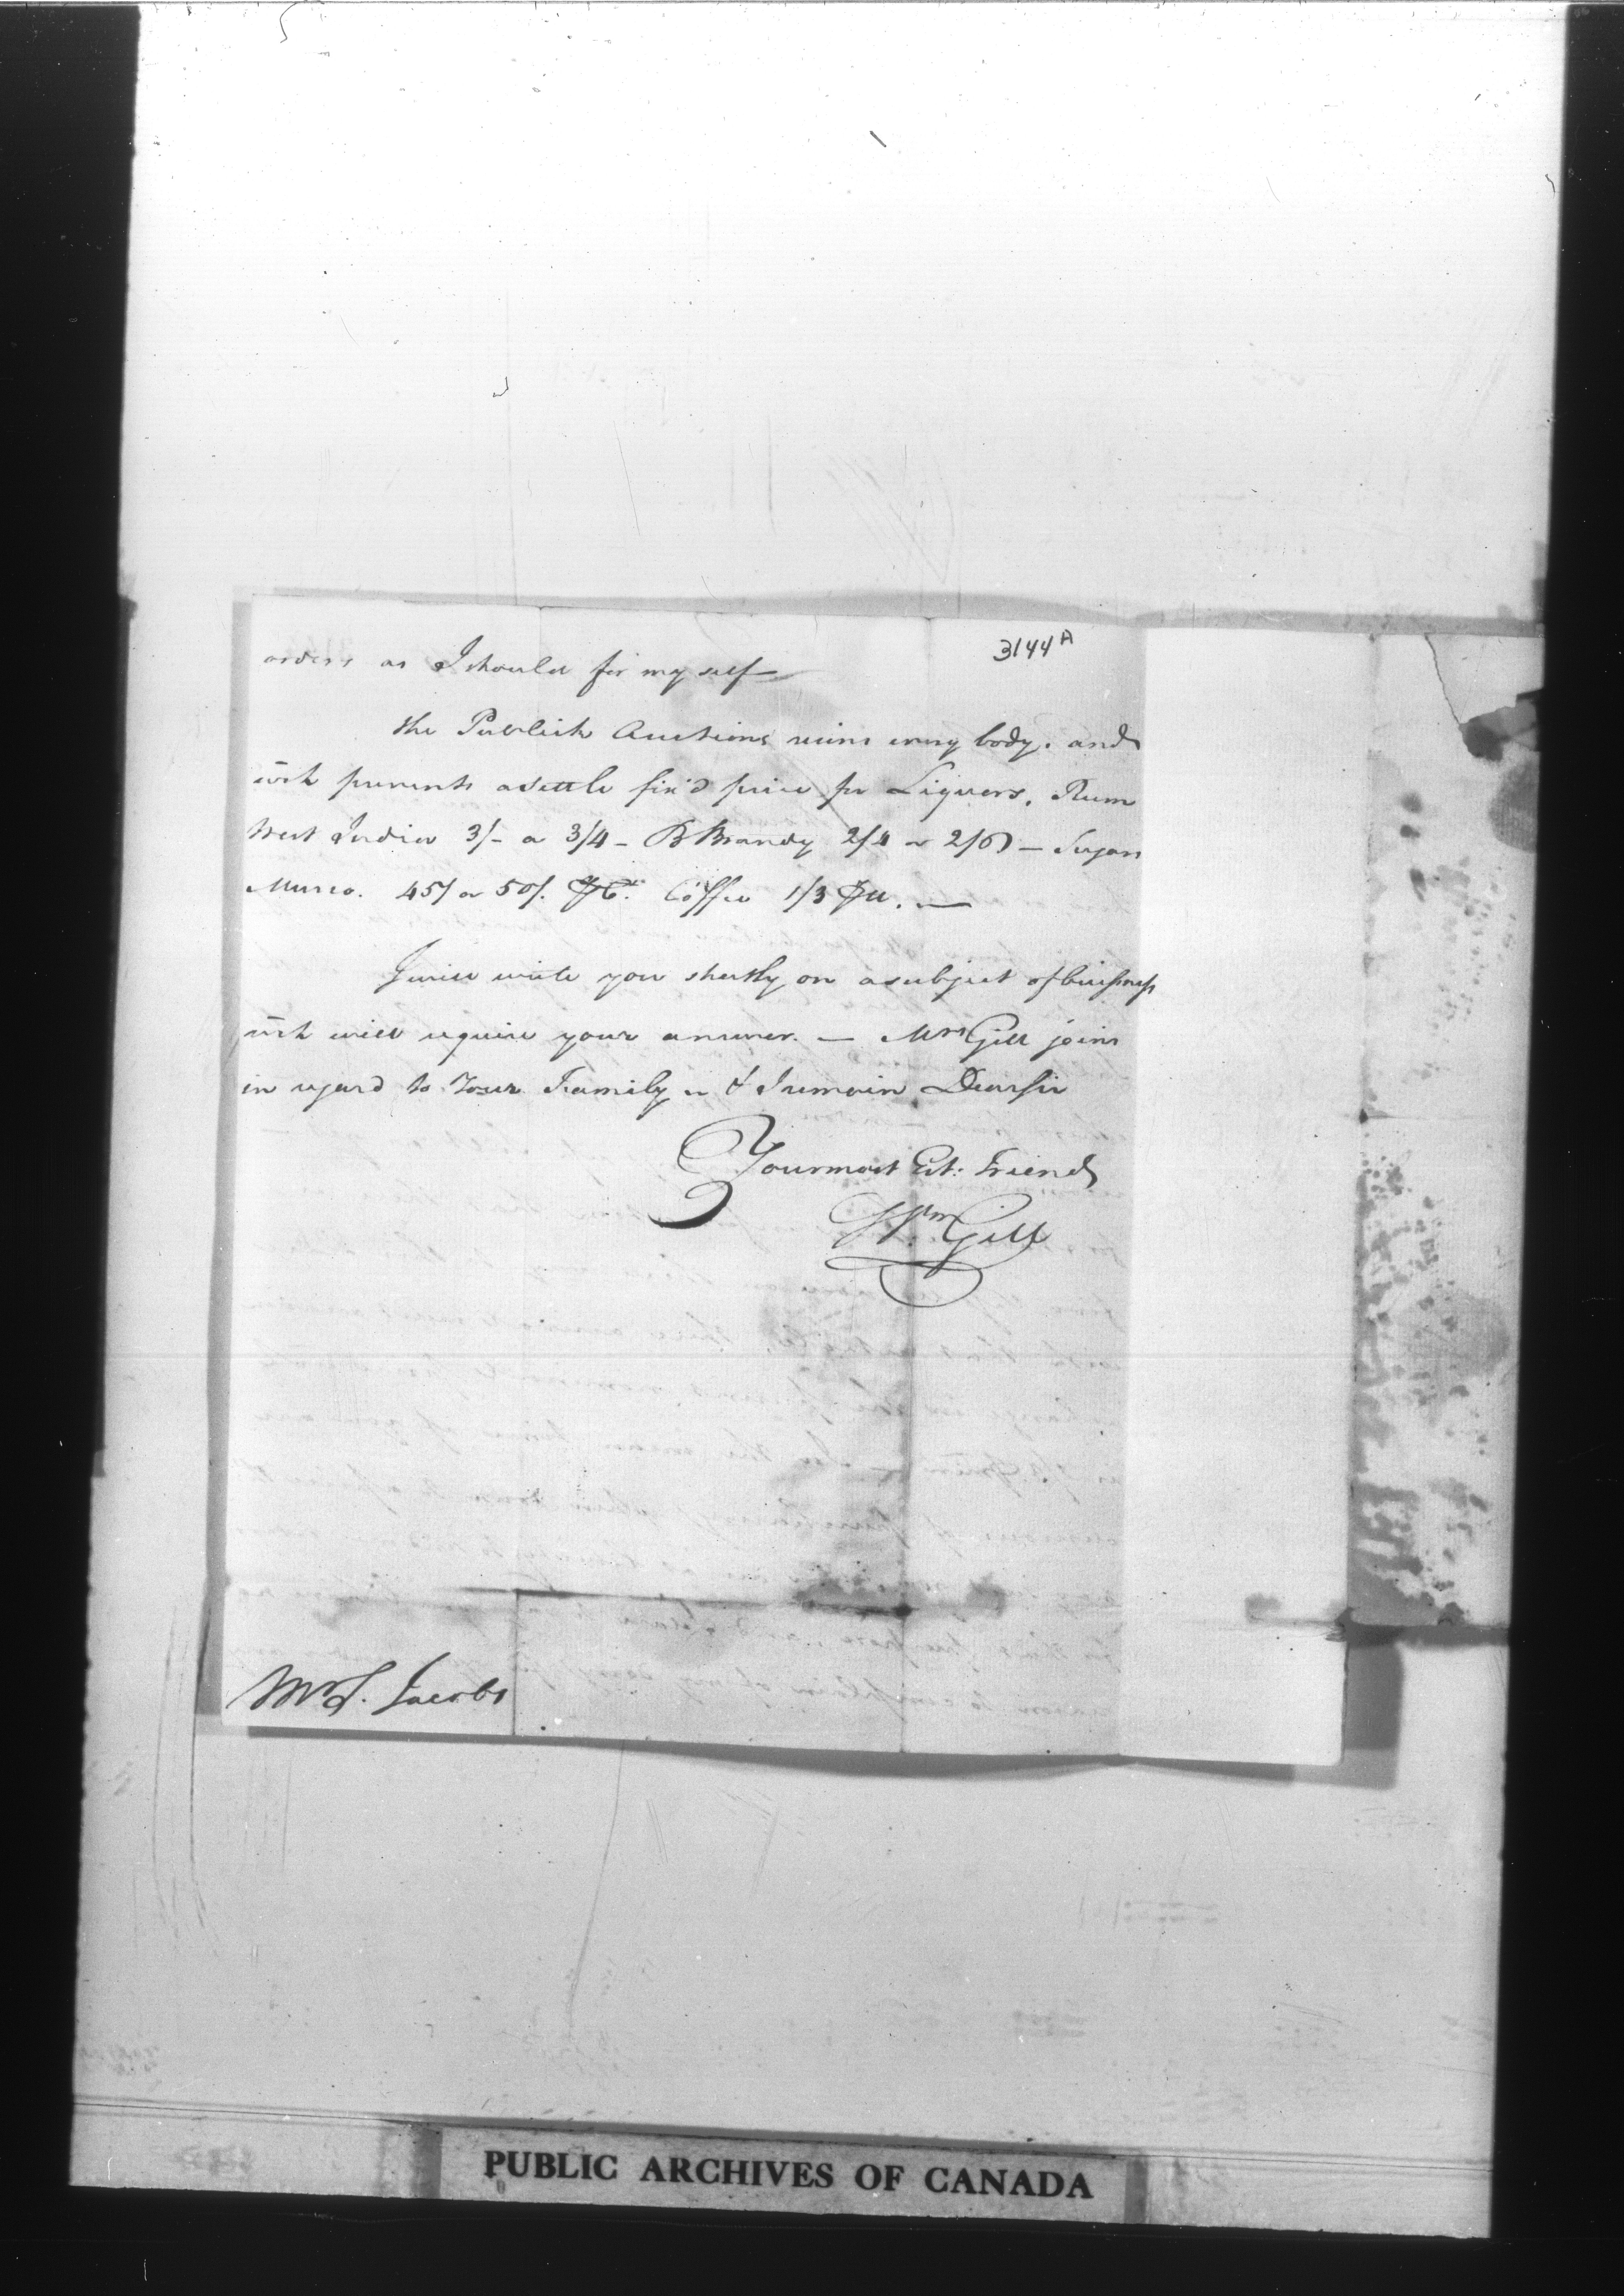 3144A
orders as I should for my self
the Publick Auctions ruins every body. and
wch prevents a Settle fix'd price for Liquors, Rum
West India 3/- a 3/4 - B Brandy 2/4 a 2/6 - Sugar
Musco. 45/ a 50/. Coffee 1/3
I will write you shortly on a subject of buissness
wch will require your answer. - Mrs Gill joins
in regard to Your Family & I remain Dear Sir
Your most Et: Friend
Wm Gill
Mr S. Jacobs
PUBLIC ARCHIVES OF CANADA